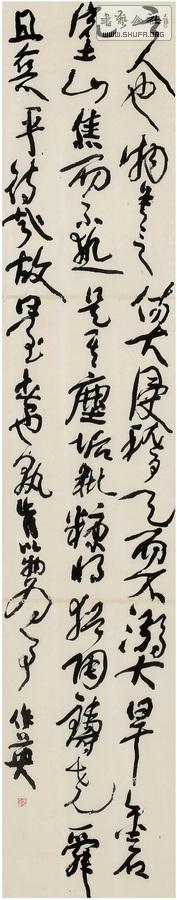 WWW.SHUFA.ORG
之人也物莫之傷大浸稽天而不溺大旱金石
流土山焦而不熱是其塵垢粃糠將猶陶鑄堯舜
者也孰肯以物為事